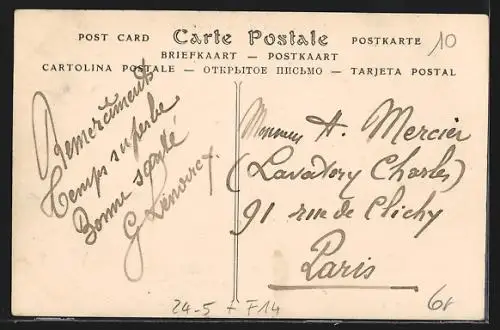 POST CARD Carte Postale POSTKARTE
BRIEFKAART — POSTKAART
CARTOLINA POSTALE — ОТКРЫТОЕ ПИСЬМО — TARJETA POSTAL
10
Remerciements
Temps superbe
Bonne santé
G Lenoir
Monsieur H. Mercier
(Lavatory Charles)
91 rue de Clichy
Paris
24-5 + F14